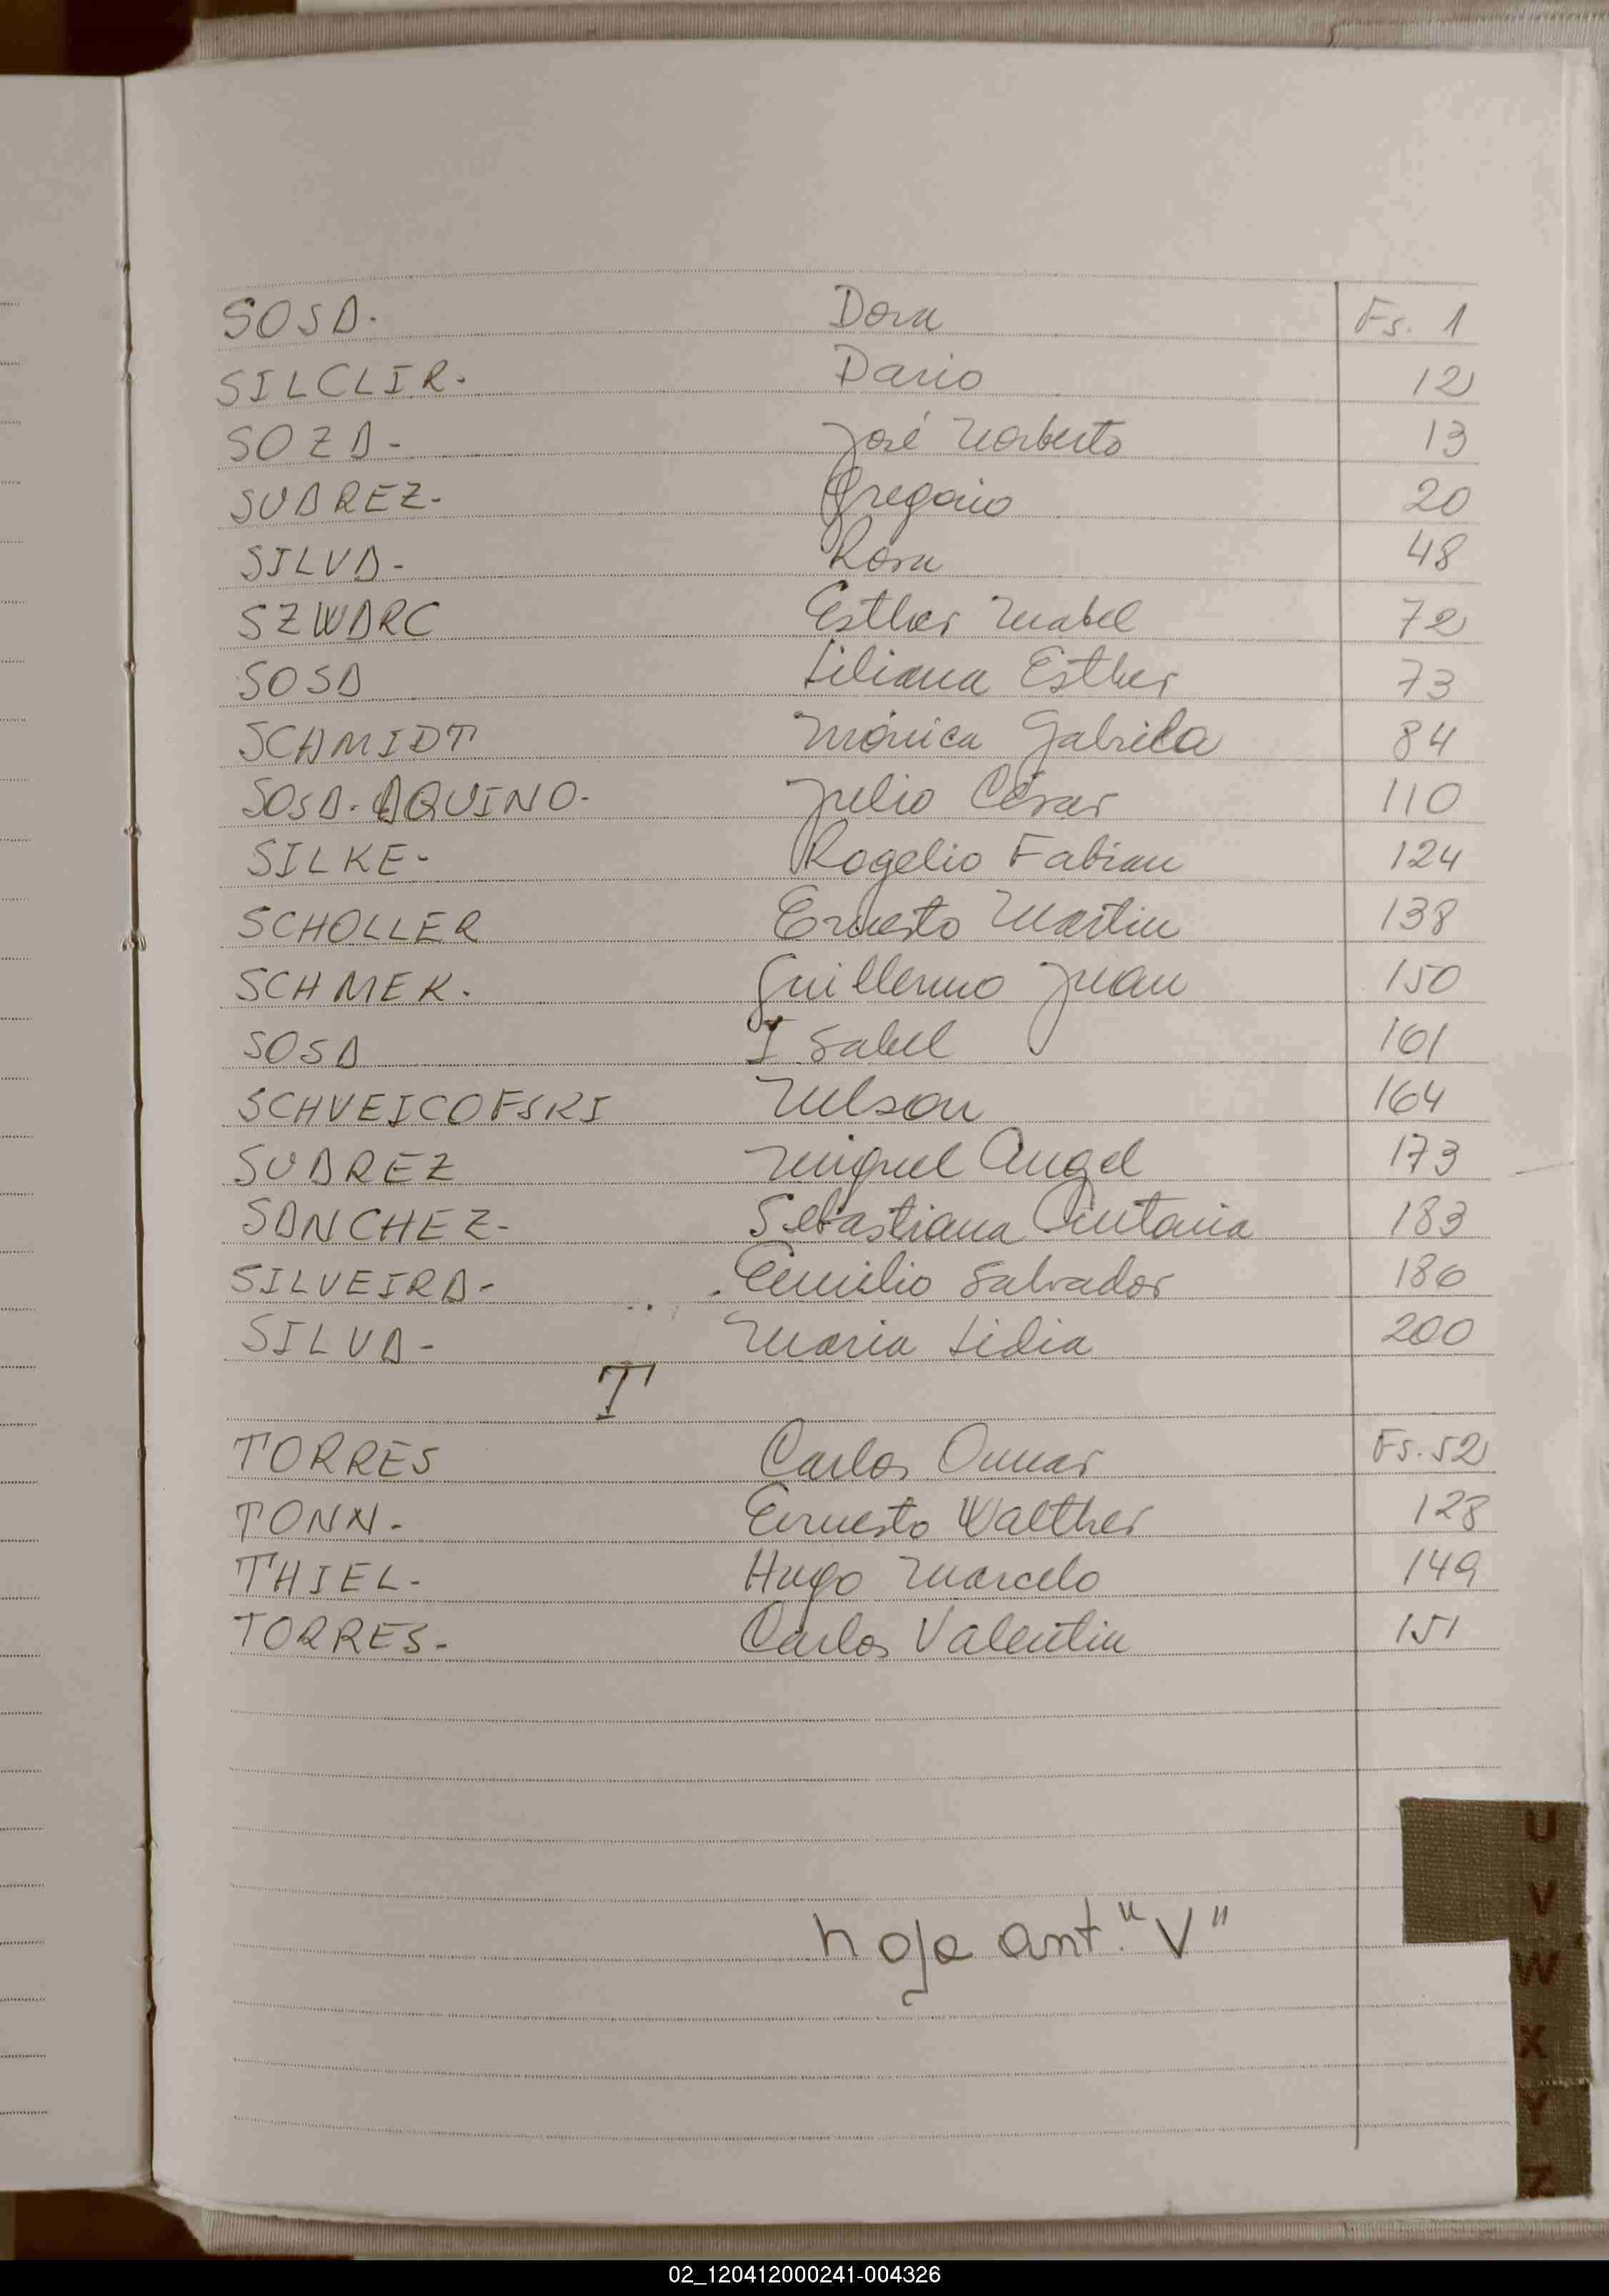 SOSA. Dora Fs. 1
SILCLIR. Dario 12
SOZA- José Norberto 13
SUAREZ- Gregorio 20
SILVA- Rosa 48
SZWARC Esther Mabel 72
SOSA Liliana Esther 73
SCHMIDT Mónica Gabriela 84
SOSA. AQUINO. Julio César 110
SILKE- Rogelio Fabian 124
SCHOLLER Ernesto Martin 138
SCHMEK. Guillermo Juan 150
SOSA Isabel 161
SCHVEICOFSKI Nelson 164
SUAREZ Miguel Angel 173
SANCHEZ- Sebastiana Antonia 183
SILVEIRA- Emilio Salvador 186
SILVA- Maria Lidia 200
T
TORRES Carlos Omar Fs. 52
TONN- Ernesto Walther 128
THIEL- Hugo Marcelo 149
TORRES- Carlos Valentin 151
U
V
hoja ant. "V"
W
X
Y
Z
02_120412000241-004326